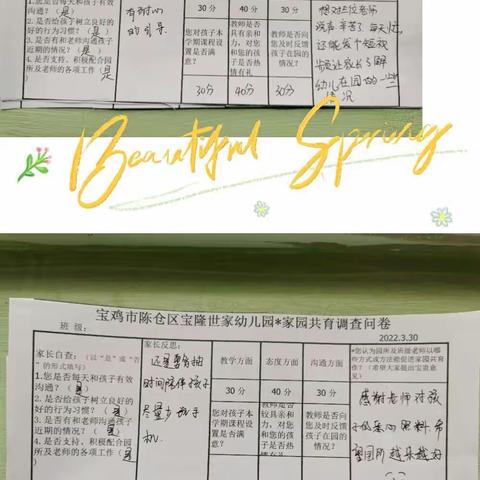 1.您是否每天和孩子有效
沟通？（是）
2.您是否给孩子树立良好的
好的行为习惯？（是）
3.是否有和老师沟通孩子
近期的情况？（是）
4.是否支持、积极配合园
所及老师的各项工作（是
有耐心
的引导
30分
40分
30分
您对孩子本
学期课程设
置是否满
意？
教师是否
具有亲和
力，对您
和您的孩
子是否热
情有礼
教师是否向
您及时反馈
孩子在园的
情况？
30分
40分
30分
想对三位老师
说声辛苦了
每天
还能发个短视
频让家长了解
幼儿在园的一些
情况
Beautiful Spring
宝鸡市陈仓区宝隆世家幼儿园*家园共育调查问卷
班级：
2022.3.30
家长自查：（以“是”或“否”
的形式填写）
1.您是否每天和孩子有效
沟通？（是）
2.您是否给孩子树立良好的
好的行为习惯？（是）
3.是否有和老师沟通孩子
近期的情况？（是）
4.是否支持、积极配合园
所及老师的各项工作（是
家长反思：
还是要多抽
时间陪伴孩子
尽量少玩手
机
教学方面
态度方面
沟通方面
30分
40分
30分
您对孩子本
学期课程设
置是否满
意？
教师是否
具有亲和
力，对您
和您的孩
子是否热
情有礼
教师是否向
您及时反馈
孩子在园的
情况？
*您认为园所及班级老师以哪
些方式或方法能促进家园共育
作？（希望大家提出宝贵意
见）
感谢老师对孩
子
照料 希
望园所越来越好